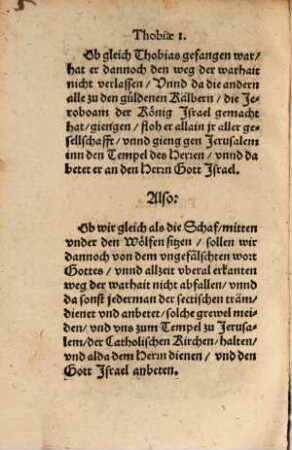 Thobiæ 1.
Ob gleich Thobias gefangen war/
hat er dannoch den weg der warhait
nicht verlassen / Vnnd da die andern
alle zu den güldenen Kälbern / die Je-
roboam der König Israel gemacht
hat / giengen / floh er allain jr aller ge-
sellschafft / vnnd gieng gen Jerusalem
inn den Tempel des Herren / vnnd da
betet er an den Herrn Gott Israel.
Also:
Ob wir gleich als die Schaf / mitten
vnder den Wölfen sitzen / sollen wir
dannoch von dem vngefälschten wort
Gottes / vnnd allzeit vberal erkanten
weg der warhait nicht abfallen / vnnd
da sonst jederman der sectischen träm-
dienet vnd anbetet / solche grewel mei-
den / vnd vns zum Tempel zu Jerusa-
lem / der Catholischen Kirchen / halten /
vnd alda dem Herrn dienen / vnd den
Gott Israel anbeten.